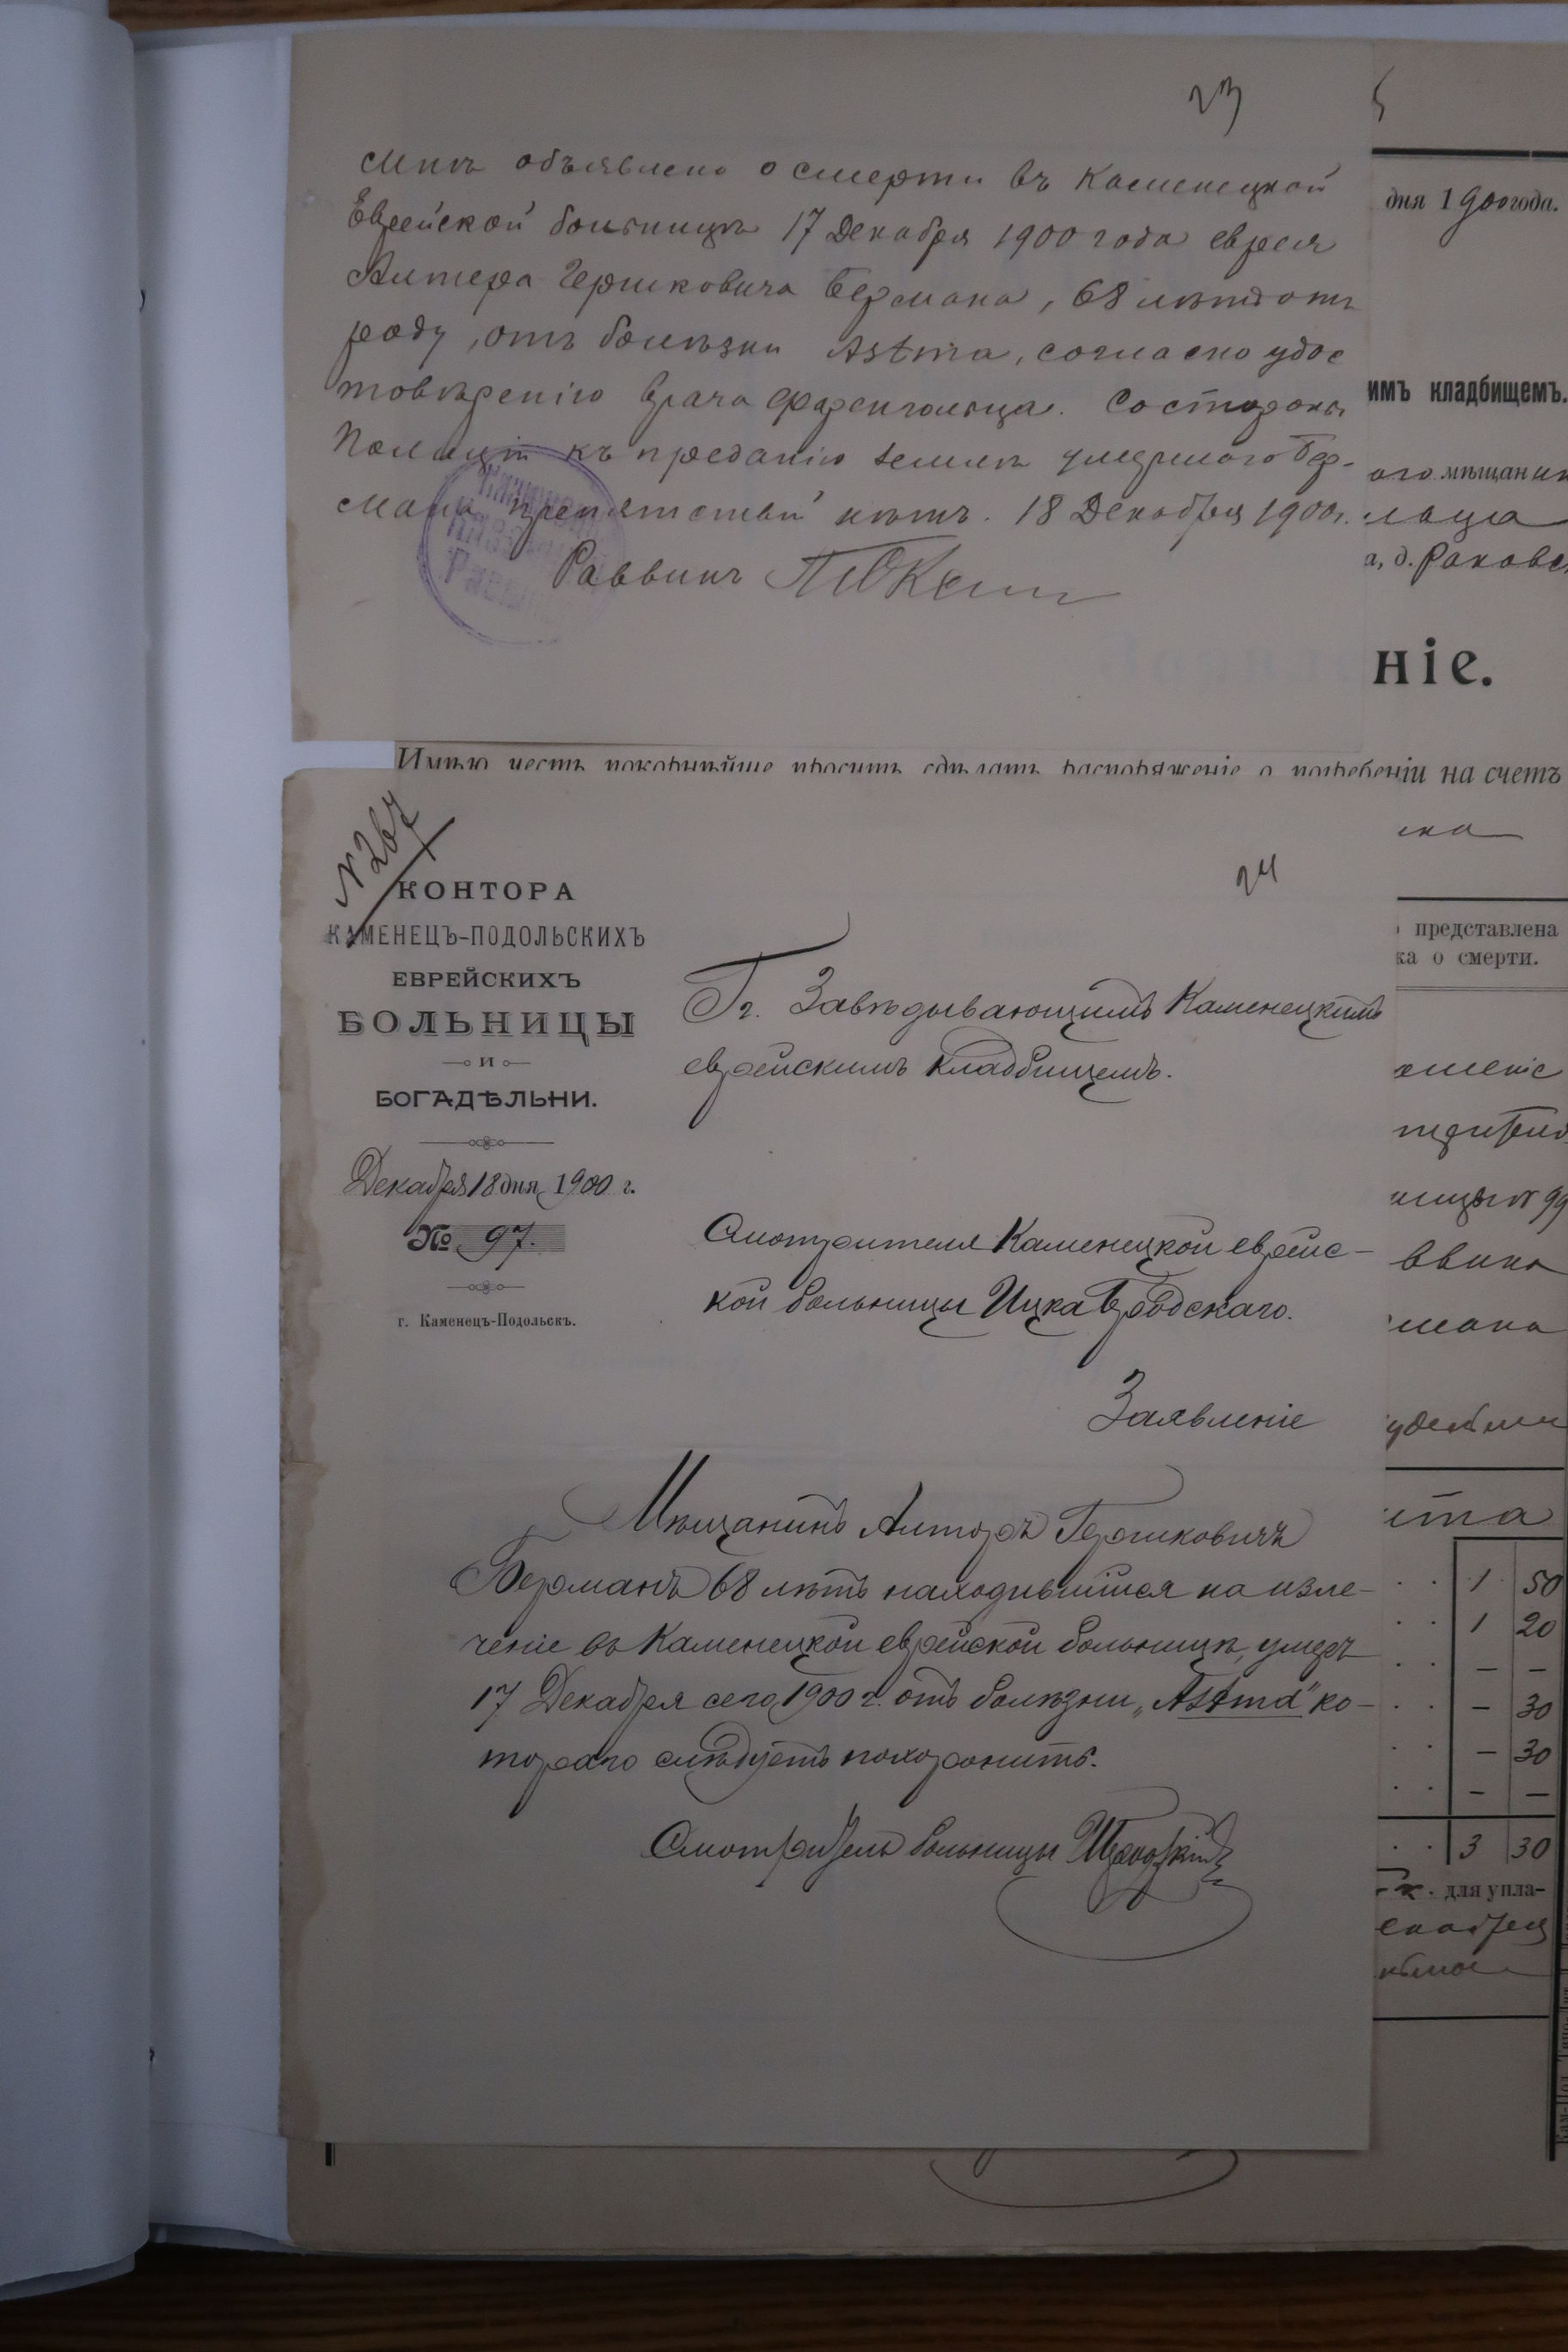 23
мнѣ объявлено о смерти въ Каменецкой
Еврейской больницѣ 17 Декабря 1900 года еврея
Алтера Гершковича Бермана, 68 лѣтъ отъ
роду, отъ болѣзни Astma, согласно удос
товѣренію врача Френгольца. Состороны
Полиціи къ преданію землѣ умершаго Бер-
мана препятствий нѣтъ. 18 Декабря 1900г.
Раввинъ
Имѣю честь покорнѣйше просить сдѣлать распоряженіе о погребеніи на счетъ
N 267
24
КОНТОРА
КАМЕНЕЦЪ-ПОДОЛЬСКИХЪ
ЕВРЕЙСКИХЪ
БОЛЬНИЦЫ
И
БОГАДѢЛЬНИ.
Декабря 18 дня 1900 г.
№ 97.
г. Каменецъ-Подольскъ.
Гг. Завѣдывающимъ Каменецкимъ
еврейскимъ кладбищемъ.
Смотрителя Каменецкой еврейс-
кой больницы Ицка Бродскаго.
Заявленіе
Мѣщанинъ Алтеръ Гершковичъ
Берманъ 68 лѣтъ находившійся на изле-
ченіе въ Каменецкой еврейской больницѣ, умеръ
17 Декабря сего 1900 г. отъ болѣзни „Astma" ко-
тораго слѣдуетъ похоронить.
Смотритель больницы
5
дня 1900 года.
имъ кладбищемъ.
ого мѣщанин
льца
а, д. Раковс
ніе.
представлена
ка о смерти.
ницы № 99
ввина
мана
1 50
1 20
— —
— 30
— 30
— —
3 30
к. для упла-